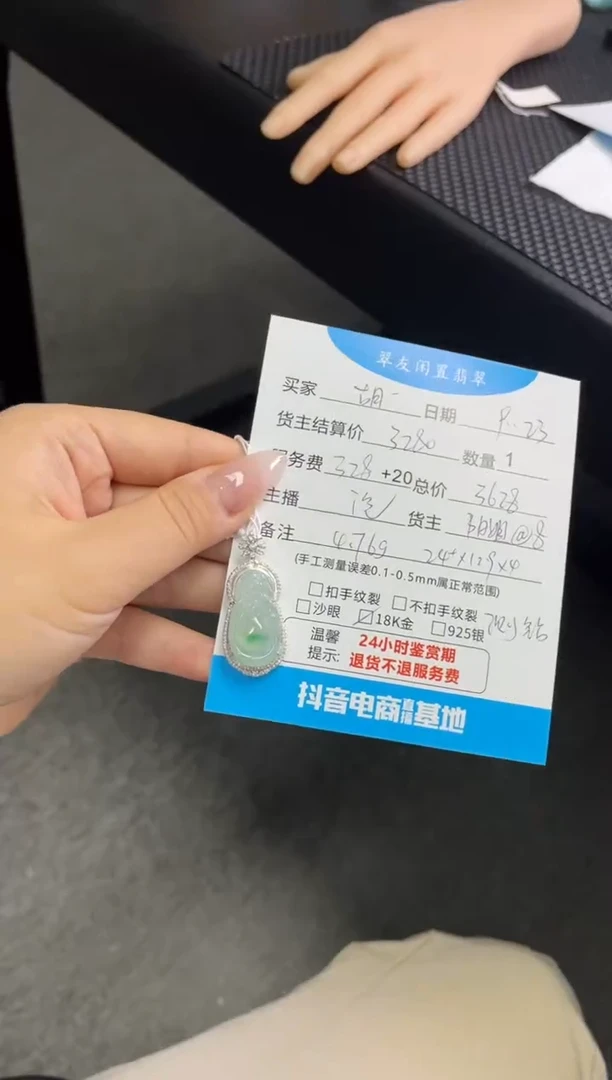 翠友闲置翡翠
买家 胡一 日期 9.23
货主结算价 3280 数量 1
服务费 328 +20总价 3628
主播 货主
备注 4.76g 24*129*4
(手工测量误差0.1-0.5mm属正常范围)
□扣手纹裂 □不扣手纹裂
□沙眼 ☑18K金 □925银
温馨提示: 24小时鉴赏期
退货不退服务费
抖音电商直播基地